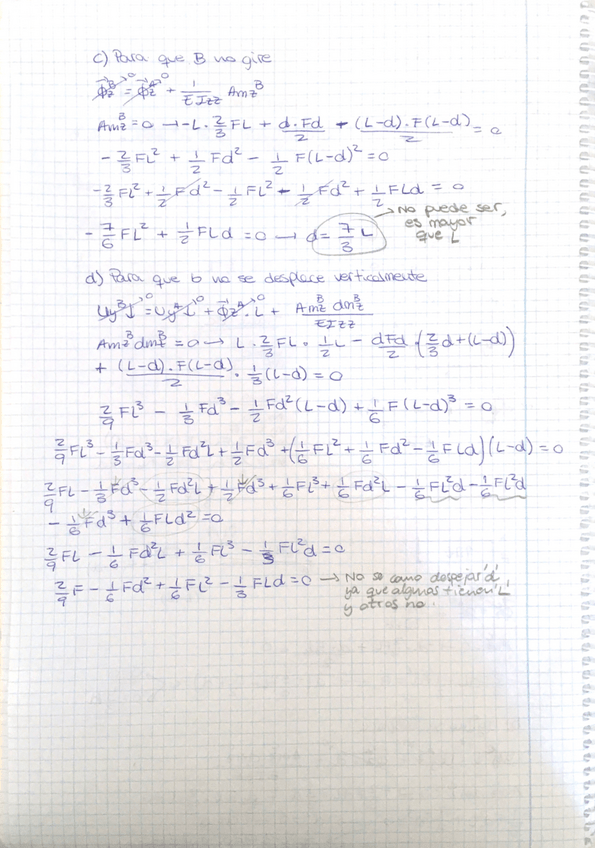 c) Para que B no gire
ϕz^B→0 = ϕz^A→0 + 1/EIzz Amz^B
Amz^B = 0 → -L · 2/3 FL + d·Fd/2 - (L-d)·F(L-d)/2 = 0
- 2/3 FL² + 1/2 Fd² - 1/2 F(L-d)² = 0
- 2/3 FL² + 1/2 Fd² - 1/2 FL² - 1/2 Fd² + 1/2 FLd = 0
- 7/6 FL² + 1/2 FLd = 0 → d = 7/3 L → No puede ser,
es mayor
que L
d) Para que b no se desplace verticalmente
Uy^B↓→0 = Uy^A↓→0 + ϕz^A→0 · L + Amz^B dmz^B/EIzz
Amz^B dmz^B = 0 → L · 2/3 FL · 1/2 L - dFd/2 · (2/3 d + (L-d))
+ (L-d)·F(L-d)/2 · 1/3 (L-d) = 0
2/9 FL³ - 1/3 Fd³ - 1/2 Fd²(L-d) + 1/6 F(L-d)³ = 0
2/9 FL³ - 1/3 Fd³ - 1/2 Fd²L + 1/2 Fd³ + (1/6 FL² + 1/6 Fd² - 1/6 FLd)(L-d) = 0
2/9 FL - 1/3 Fd³ - 1/2 Fd²L + 1/2 Fd³ + 1/6 FL³ + 1/6 Fd²L - 1/6 FL²d - 1/6 FL²d
- 1/6 Fd³ + 1/6 FLd² = 0
2/9 FL - 1/6 Fd²L + 1/6 FL³ - 1/3 FL²d = 0
2/9 F - 1/6 Fd² + 1/6 FL² - 1/3 FLd = 0 → No se como despejar 'd',
ya que algunos tienen 'L'
y otros no.